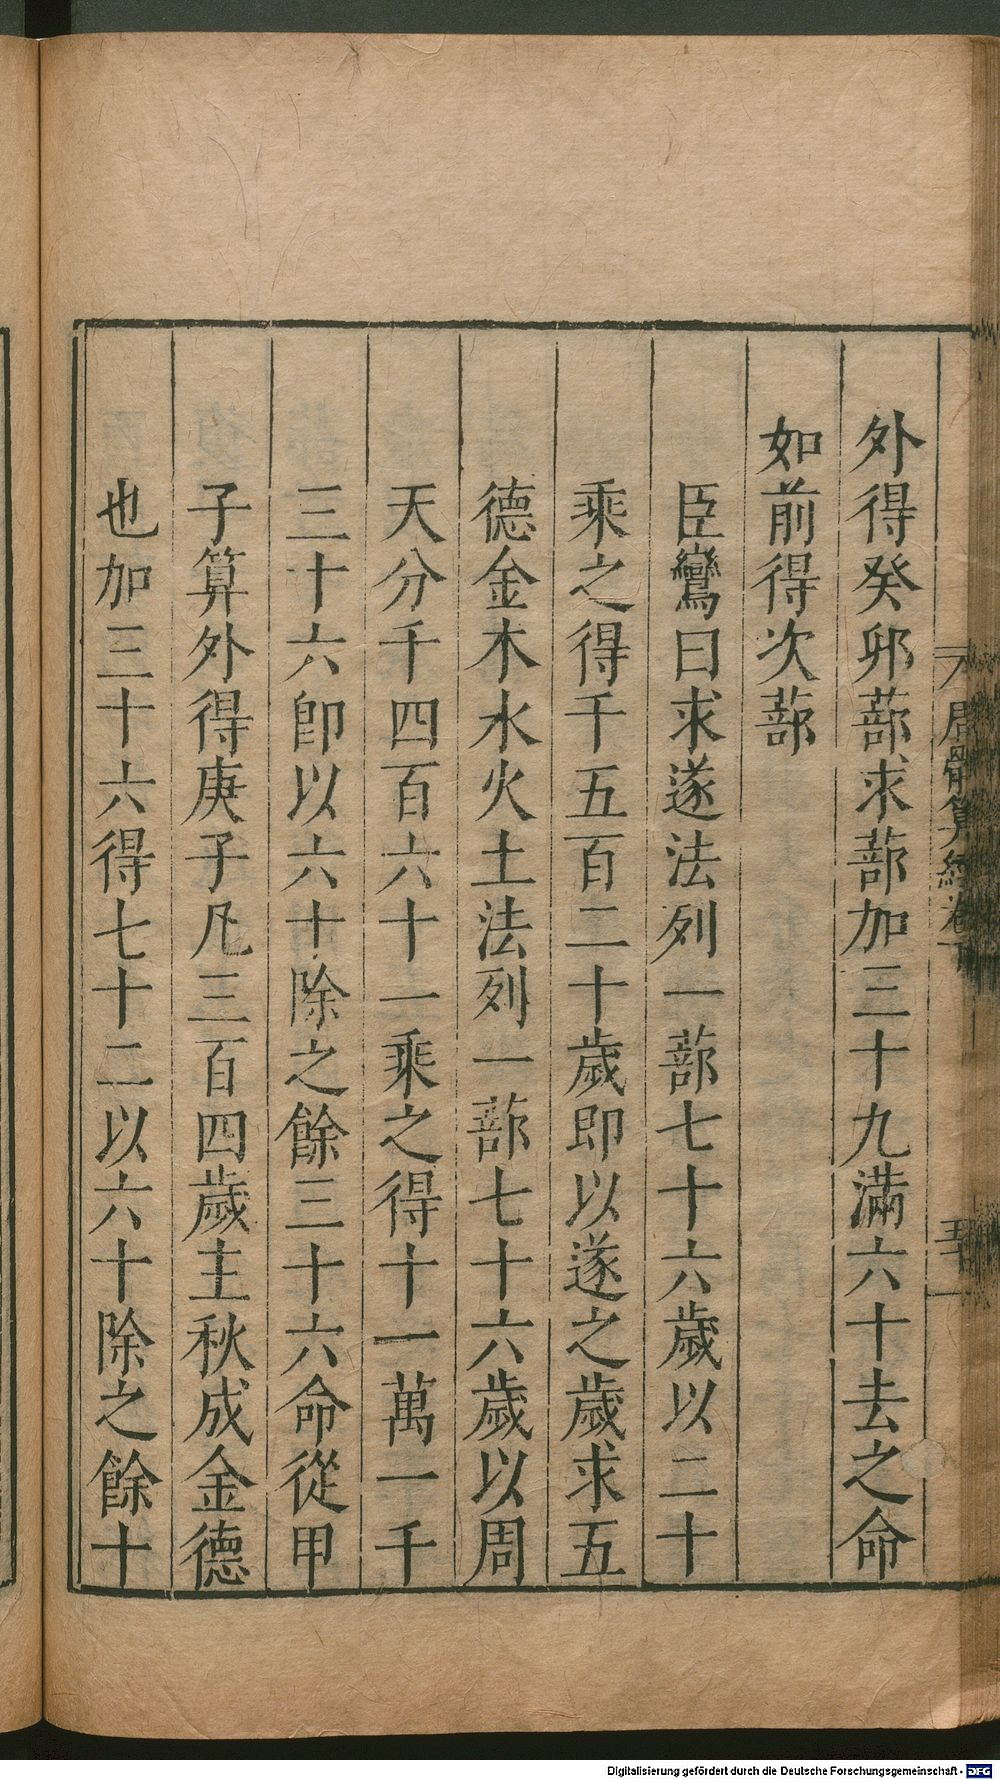 外得癸卯蔀求蔀加三十九滿六十去之命
如前得次蔀
臣鸞曰求遂法列一蔀七十六歲以二十
乘之得千五百二十歲即以遂之歲求五
德金木水火土法列一蔀七十六歲以周
天分千四百六十一乘之得十一萬一千
三十六卽以六十除之餘三十六命從甲
子算外得庚子凡三百四歲主秋成金德
也加三十六得七十二以六十除之餘十
周髀算經卷下
Digitalisierung gefördert durch die Deutsche Forschungsgemeinschaft - DFG